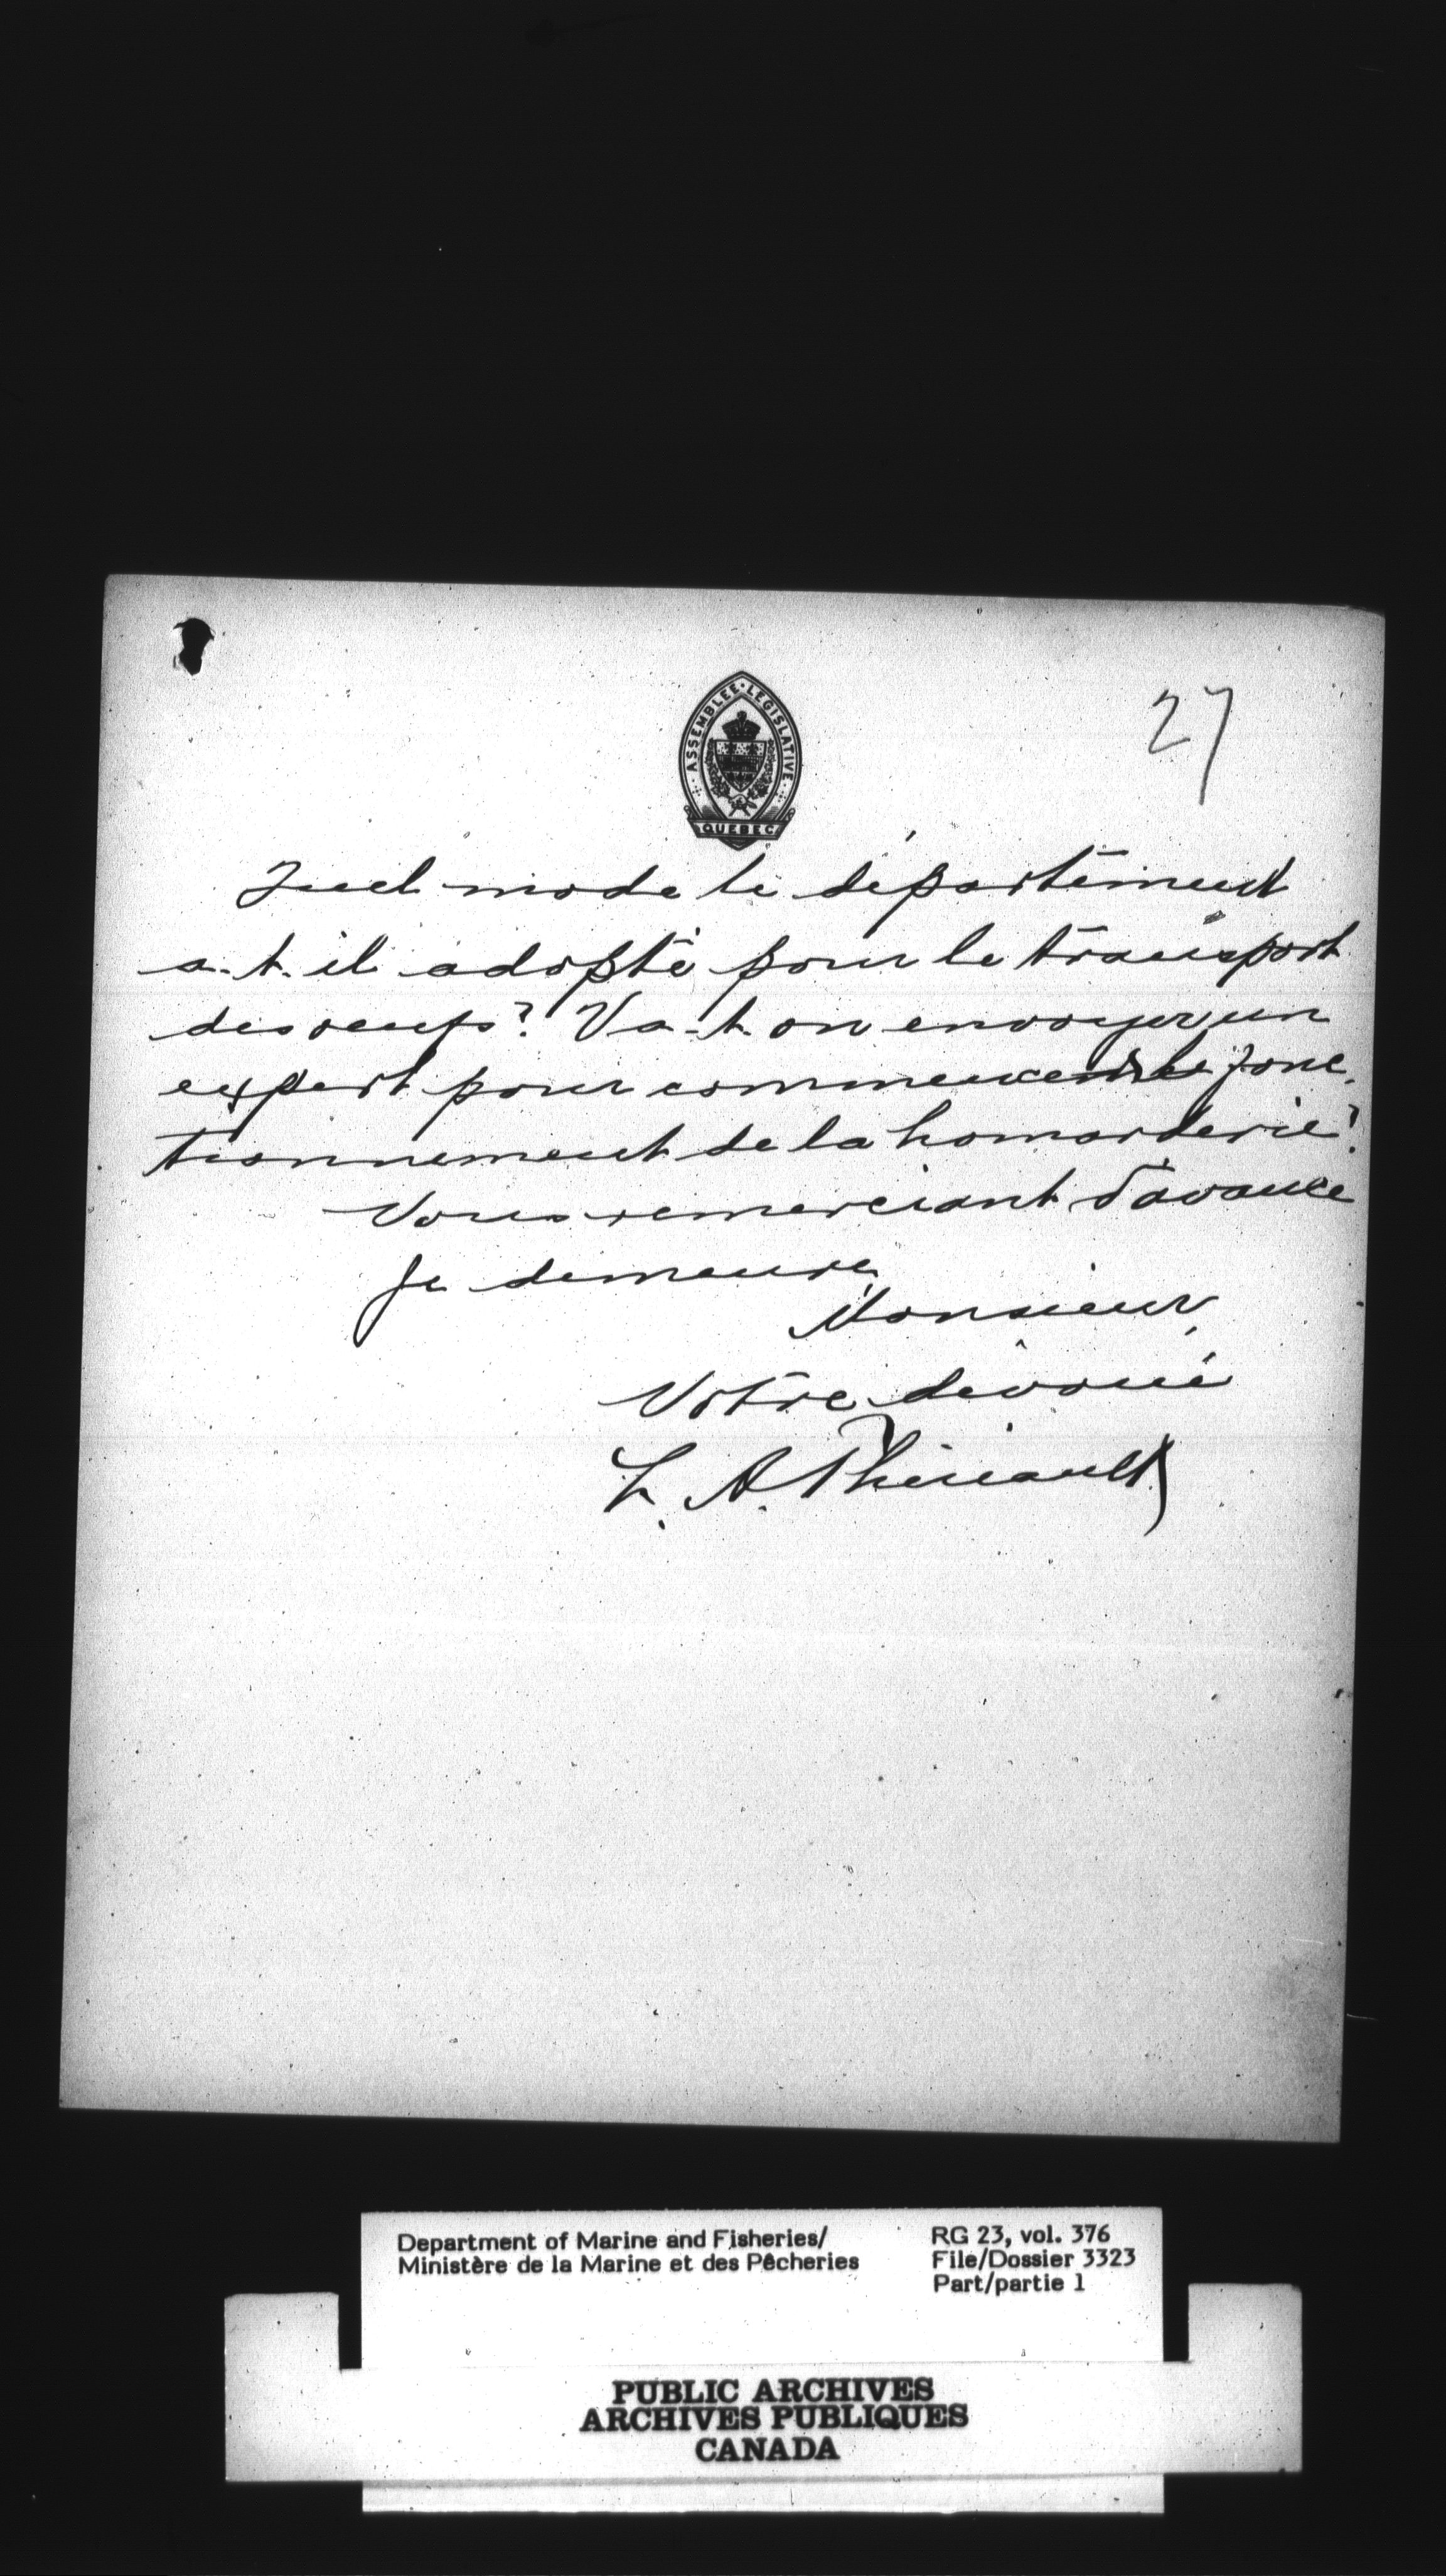 27
ASSEMBLEE · LEGISLATIVE
QUEBEC
Quel mode le département
a-t-il adopté pour le transport
des oeufs? Va-t-on envoyer un
expert pour commencer le fonc-
tionnement de la homarderie?
Vous remerciant d'avance
Je demeure
Monsieur,
Votre dévoué
L. A. Thériault
Department of Marine and Fisheries/
Ministère de la Marine et des Pêcheries
RG 23, vol. 376
File/Dossier 3323
Part/partie 1
PUBLIC ARCHIVES
ARCHIVES PUBLIQUES
CANADA